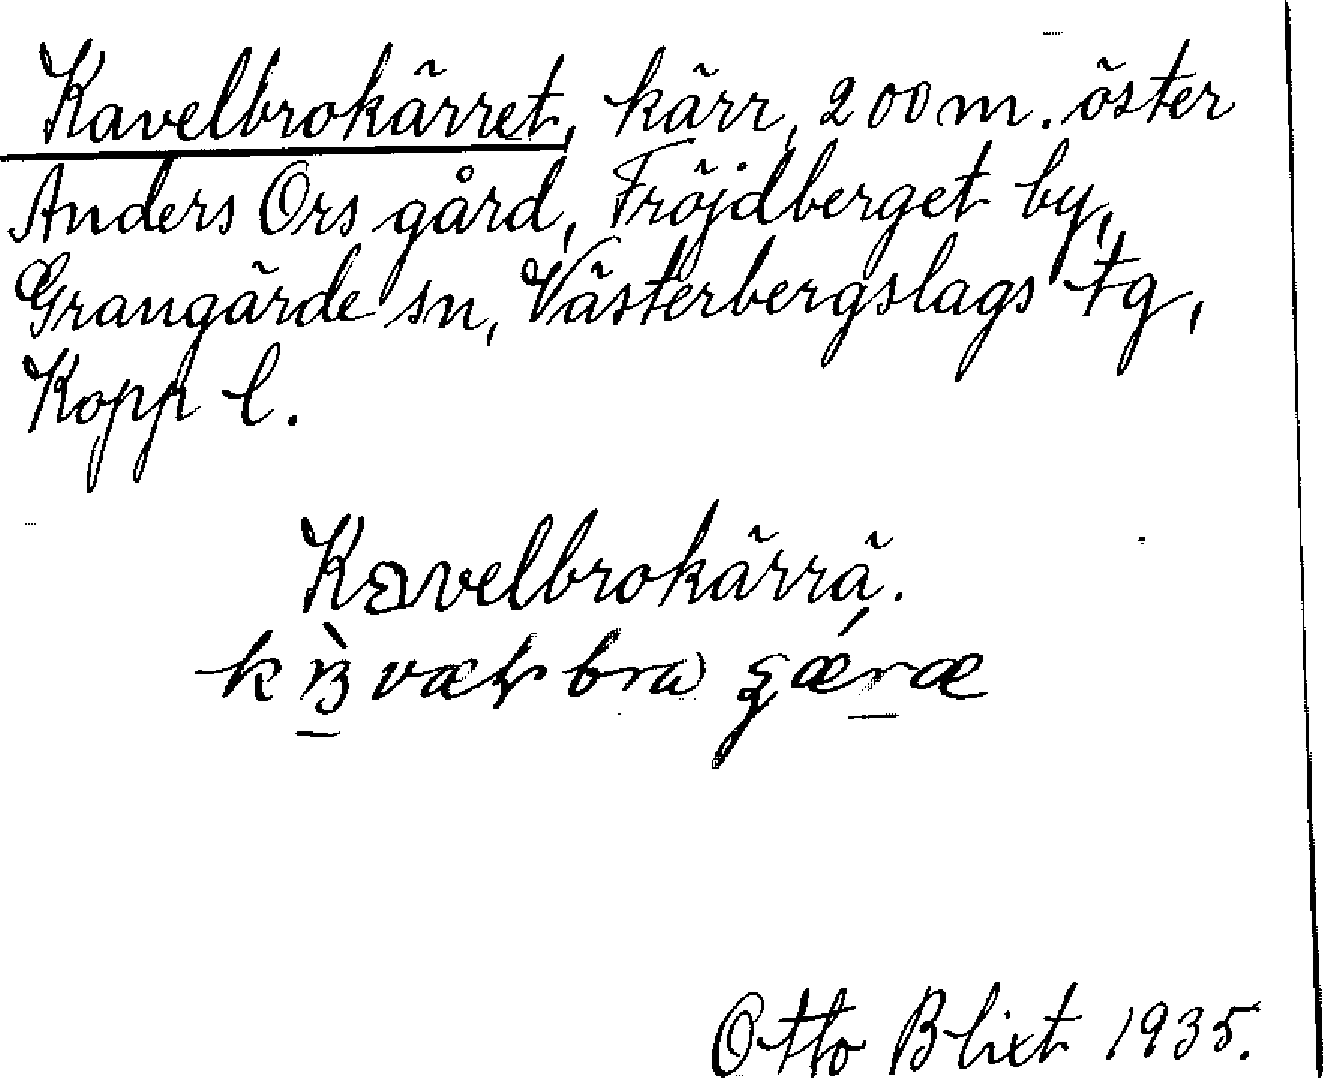 Kavelbrokärret, kärr, 200 m. öster
Anders Ors gård, Fröjdberget by,
Grangärde sn, Västerbergslags fg,
Kopp l.
Kavelbrokärrä.
Otto Blixt 1935.